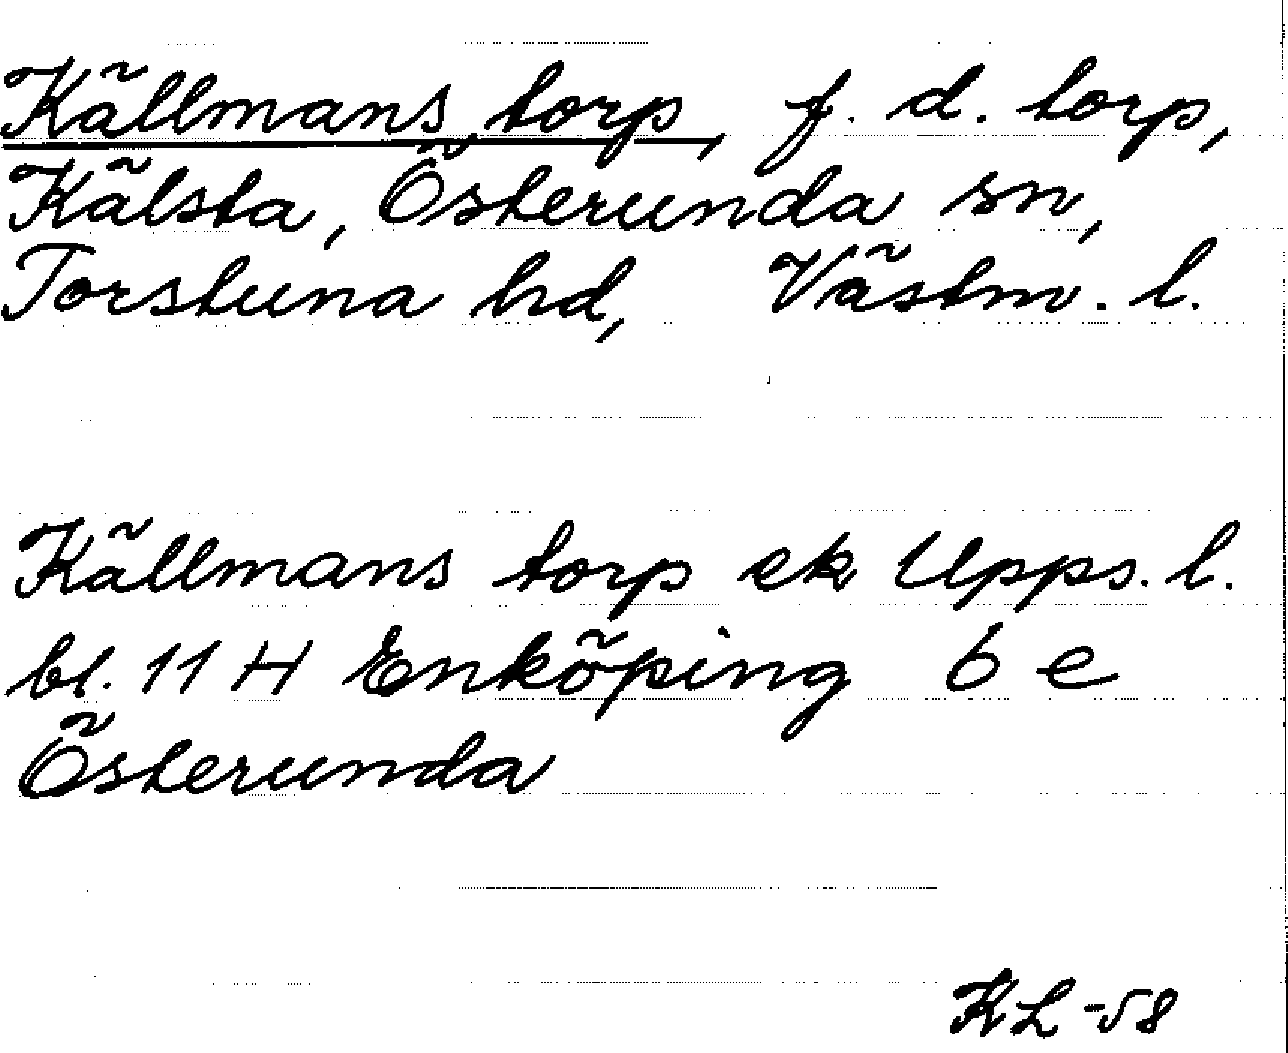 Källmans torp, f. d. torp,
Kälsta, Österunda sn,
Torstuna hd, Västm. l.
Källmans torp ek Upps. l.
bl. 11 H Enköping 6 e
Österunda
KL -58